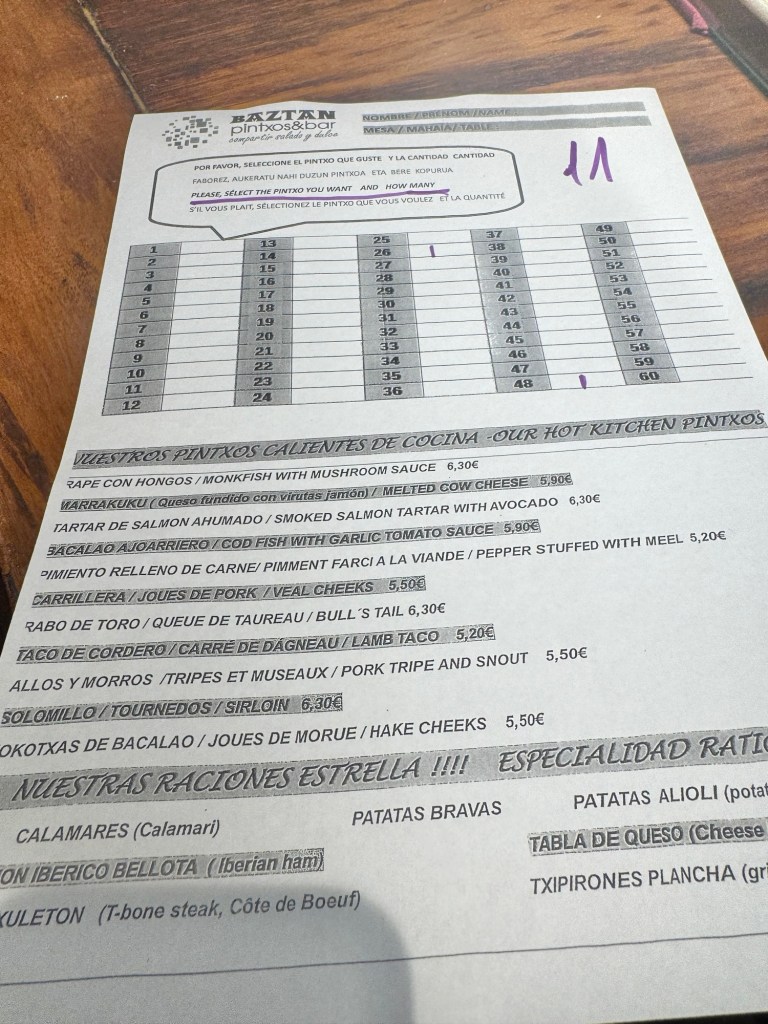 BAZTAN
pintxos&bar
compartir salado y dulce
NOMBRE / PRENOM /NAME
MESA / MAHAIA/ TABLE
11
POR FAVOR, SELECCIONE EL PINTXO QUE GUSTE Y LA CANTIDAD CANTIDAD
FABOREZ, AUKERATU NAHI DUZUN PINTXOA ETA BERE KOPURUA
PLEASE, SÉLECT THE PINTXO YOU WANT AND HOW MANY
S'IL VOUS PLAIT, SÉLECTIONEZ LE PINTXO QUE VOUS VOULEZ ET LA QUANTITÉ
1 13 25 37 49
2 14 26 I 38 50
3 15 27 39 51
4 16 28 40 52
5 17 29 41 53
6 18 30 42 54
7 19 31 43 55
8 20 32 44 56
9 21 33 45 57
10 22 34 46 58
11 23 35 47 59
12 24 36 48 I 60
NUESTROS PINTXOS CALIENTES DE COCINA -OUR HOT KITCHEN PINTXOS
RAPE CON HONGOS / MONKFISH WITH MUSHROOM SAUCE 6,30€
MARRAKUKU ( Queso fundido con virutas jamón) / MELTED COW CHEESE 5,90€
TARTAR DE SALMON AHUMADO / SMOKED SALMON TARTAR WITH AVOCADO 6,30€
BACALAO AJOARRIERO / COD FISH WITH GARLIC TOMATO SAUCE 5,90€
PIMIENTO RELLENO DE CARNE/ PIMMENT FARCI A LA VIANDE / PEPPER STUFFED WITH MEEL 5,20€
CARRILLERA / JOUES DE PORK / VEAL CHEEKS 5,50€
RABO DE TORO / QUEUE DE TAUREAU / BULL´S TAIL 6,30€
TACO DE CORDERO / CARRÉ DE DÁGNEAU / LAMB TACO 5,20€
ALLOS Y MORROS /TRIPES ET MUSEAUX / PORK TRIPE AND SNOUT 5,50€
SOLOMILLO / TOURNEDOS / SIRLOIN 6,30€
OKOTXAS DE BACALAO / JOUES DE MORUE / HAKE CHEEKS 5,50€
NUESTRAS RACIONES ESTRELLA !!!! ESPECIALIDAD RATIO
CALAMARES (Calamari) PATATAS BRAVAS PATATAS ALIOLI (potat
ON IBERICO BELLOTA ( Iberian ham) TABLA DE QUESO (Cheese
XULETON (T-bone steak, Côte de Boeuf) TXIPIRONES PLANCHA (gri